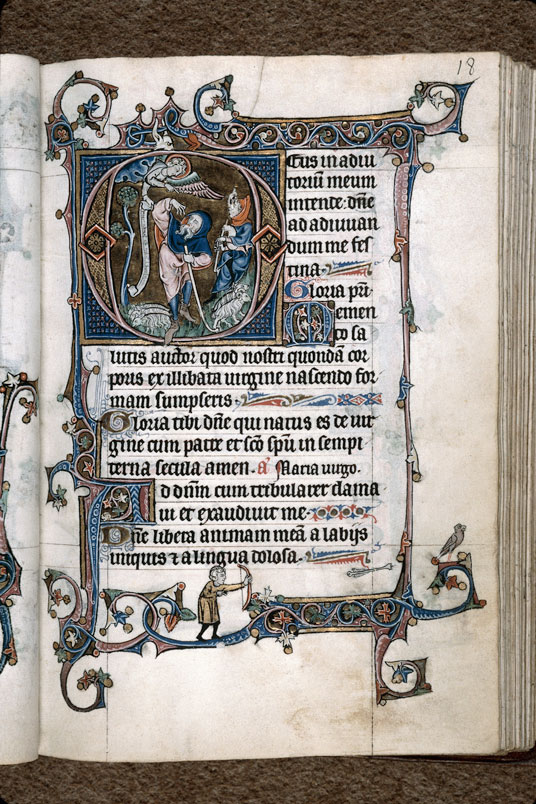 18
Eus in adiu
torium meum
intende: dñe
ad adiuuan
dum me fes
tina.
Gloria pri̅
Memen
to sa
lutis auctor quod nostri quondā cor
poris ex illibata uirgine nascendo for
mam sumpseris.
Gloria tibi dñe qui natus es de uir
gine cum patre et sc̅o sp̅u in sempi
terna secula amen. a̅ Maria uirgo.
Ad dn̅m cum tribularer clama
ui et exaudiuit me.
Dn̅e libera animam meā a labijs
iniquis ⁊ a lingua dolosa.